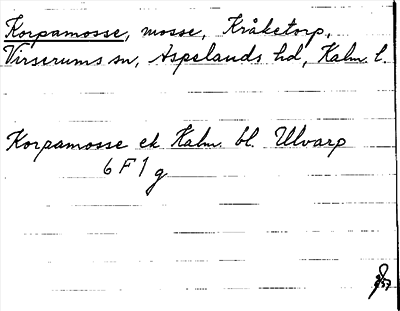 Korpamosse, mosse, Kråketorp,
Virserums sn, Aspelands hd, Kalm. l.
Korpamosse ek Kalm. bl. Ulvarp
6 F 1 g